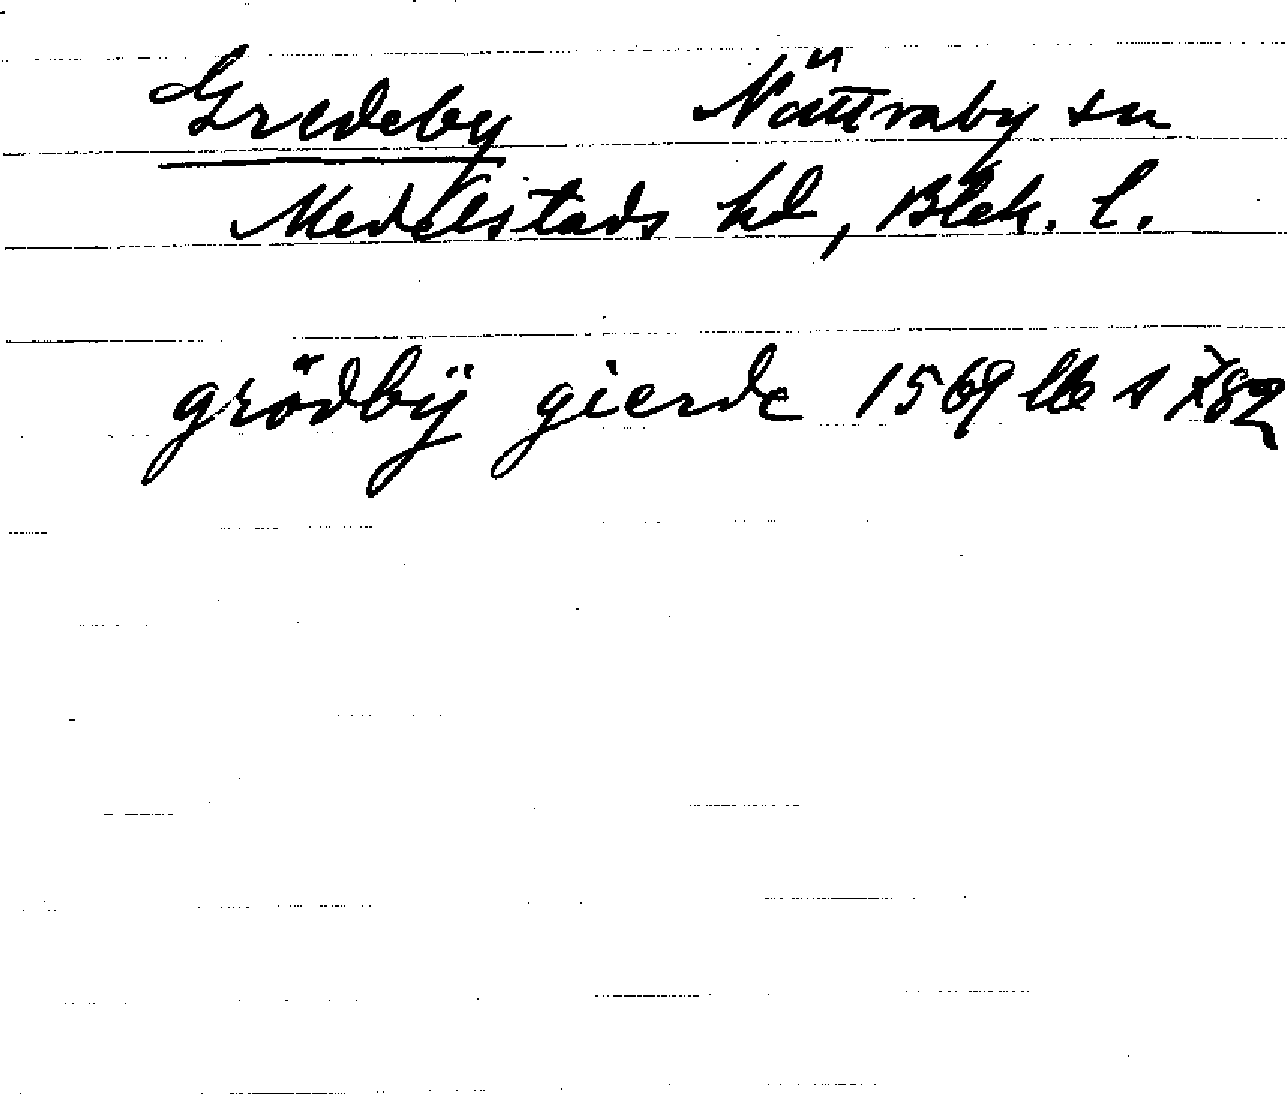 Gredeby Nättraby sn
Medelstads hd, Blek. l.
grödbÿ gierde 1569 s